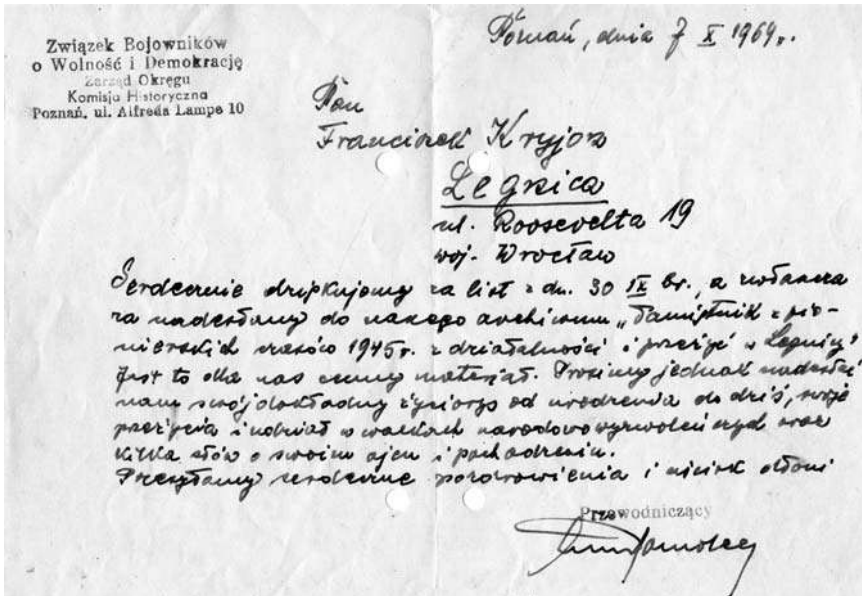 Związek Bojowników
o Wolność i Demokrację
Zarząd Okręgu
Komisja Historyczna
Poznań, ul. Alfreda Lampe 10
Poznań, dnia 7 X 1969r.
Pan
Franciszek Kryjom
Legnica
ul. Roosevelta 19
woj. Wrocław
Serdecznie dziękujemy za list z dn. 30 IX br., a zwłaszcza
za nadesłany do naszego archiwum „Pamiętnik z pio-
nierskich czasów 1945r. z działalności i przeżyć w Legnicy"
Jest to dla nas cenny materiał. Prosimy jednak nadesłać
nam swój dokładny życiorys od urodzenia do dziś, swoje
przeżycia i udział w walkach narodowowyzwoleńczych oraz
kilka słów o swoim ojcu i pochodzeniu.
Przesyłamy serdeczne pozdrowienia i uścisk dłoni
Przewodniczący